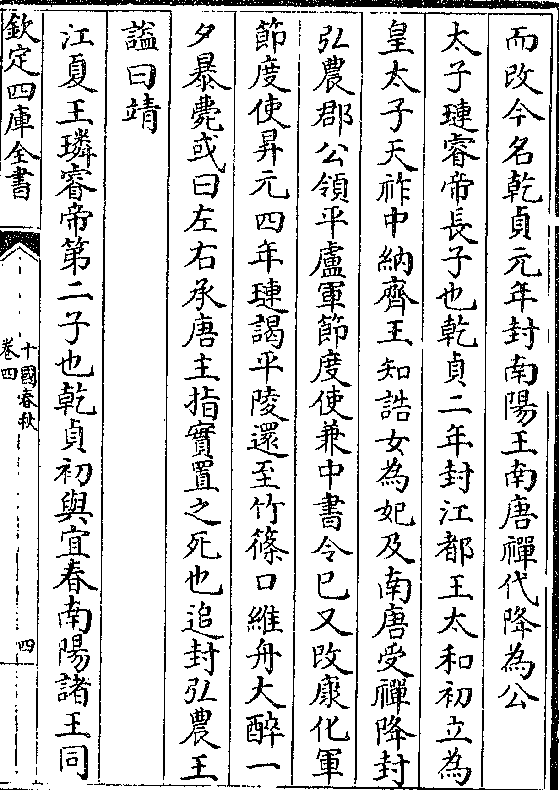 而改今名乾貞元年封南陽王南唐禪代降為公
太子璉睿帝長子也乾貞二年封江都王太和初立為
皇太子天祚中納齊王知誥女為妃及南唐受禪降封
弘農郡公領平盧軍節度使兼中書令已又改康化軍
節度使昇元四年璉謁平陵還至竹篠口維舟大醉一
夕暴薨或曰左右承唐主指實置之死也追封弘農王
諡曰靖
江夏王璘睿帝第二子也乾貞初與宜春南陽諸王同
欽定四庫全書
十國春秋
卷四
四